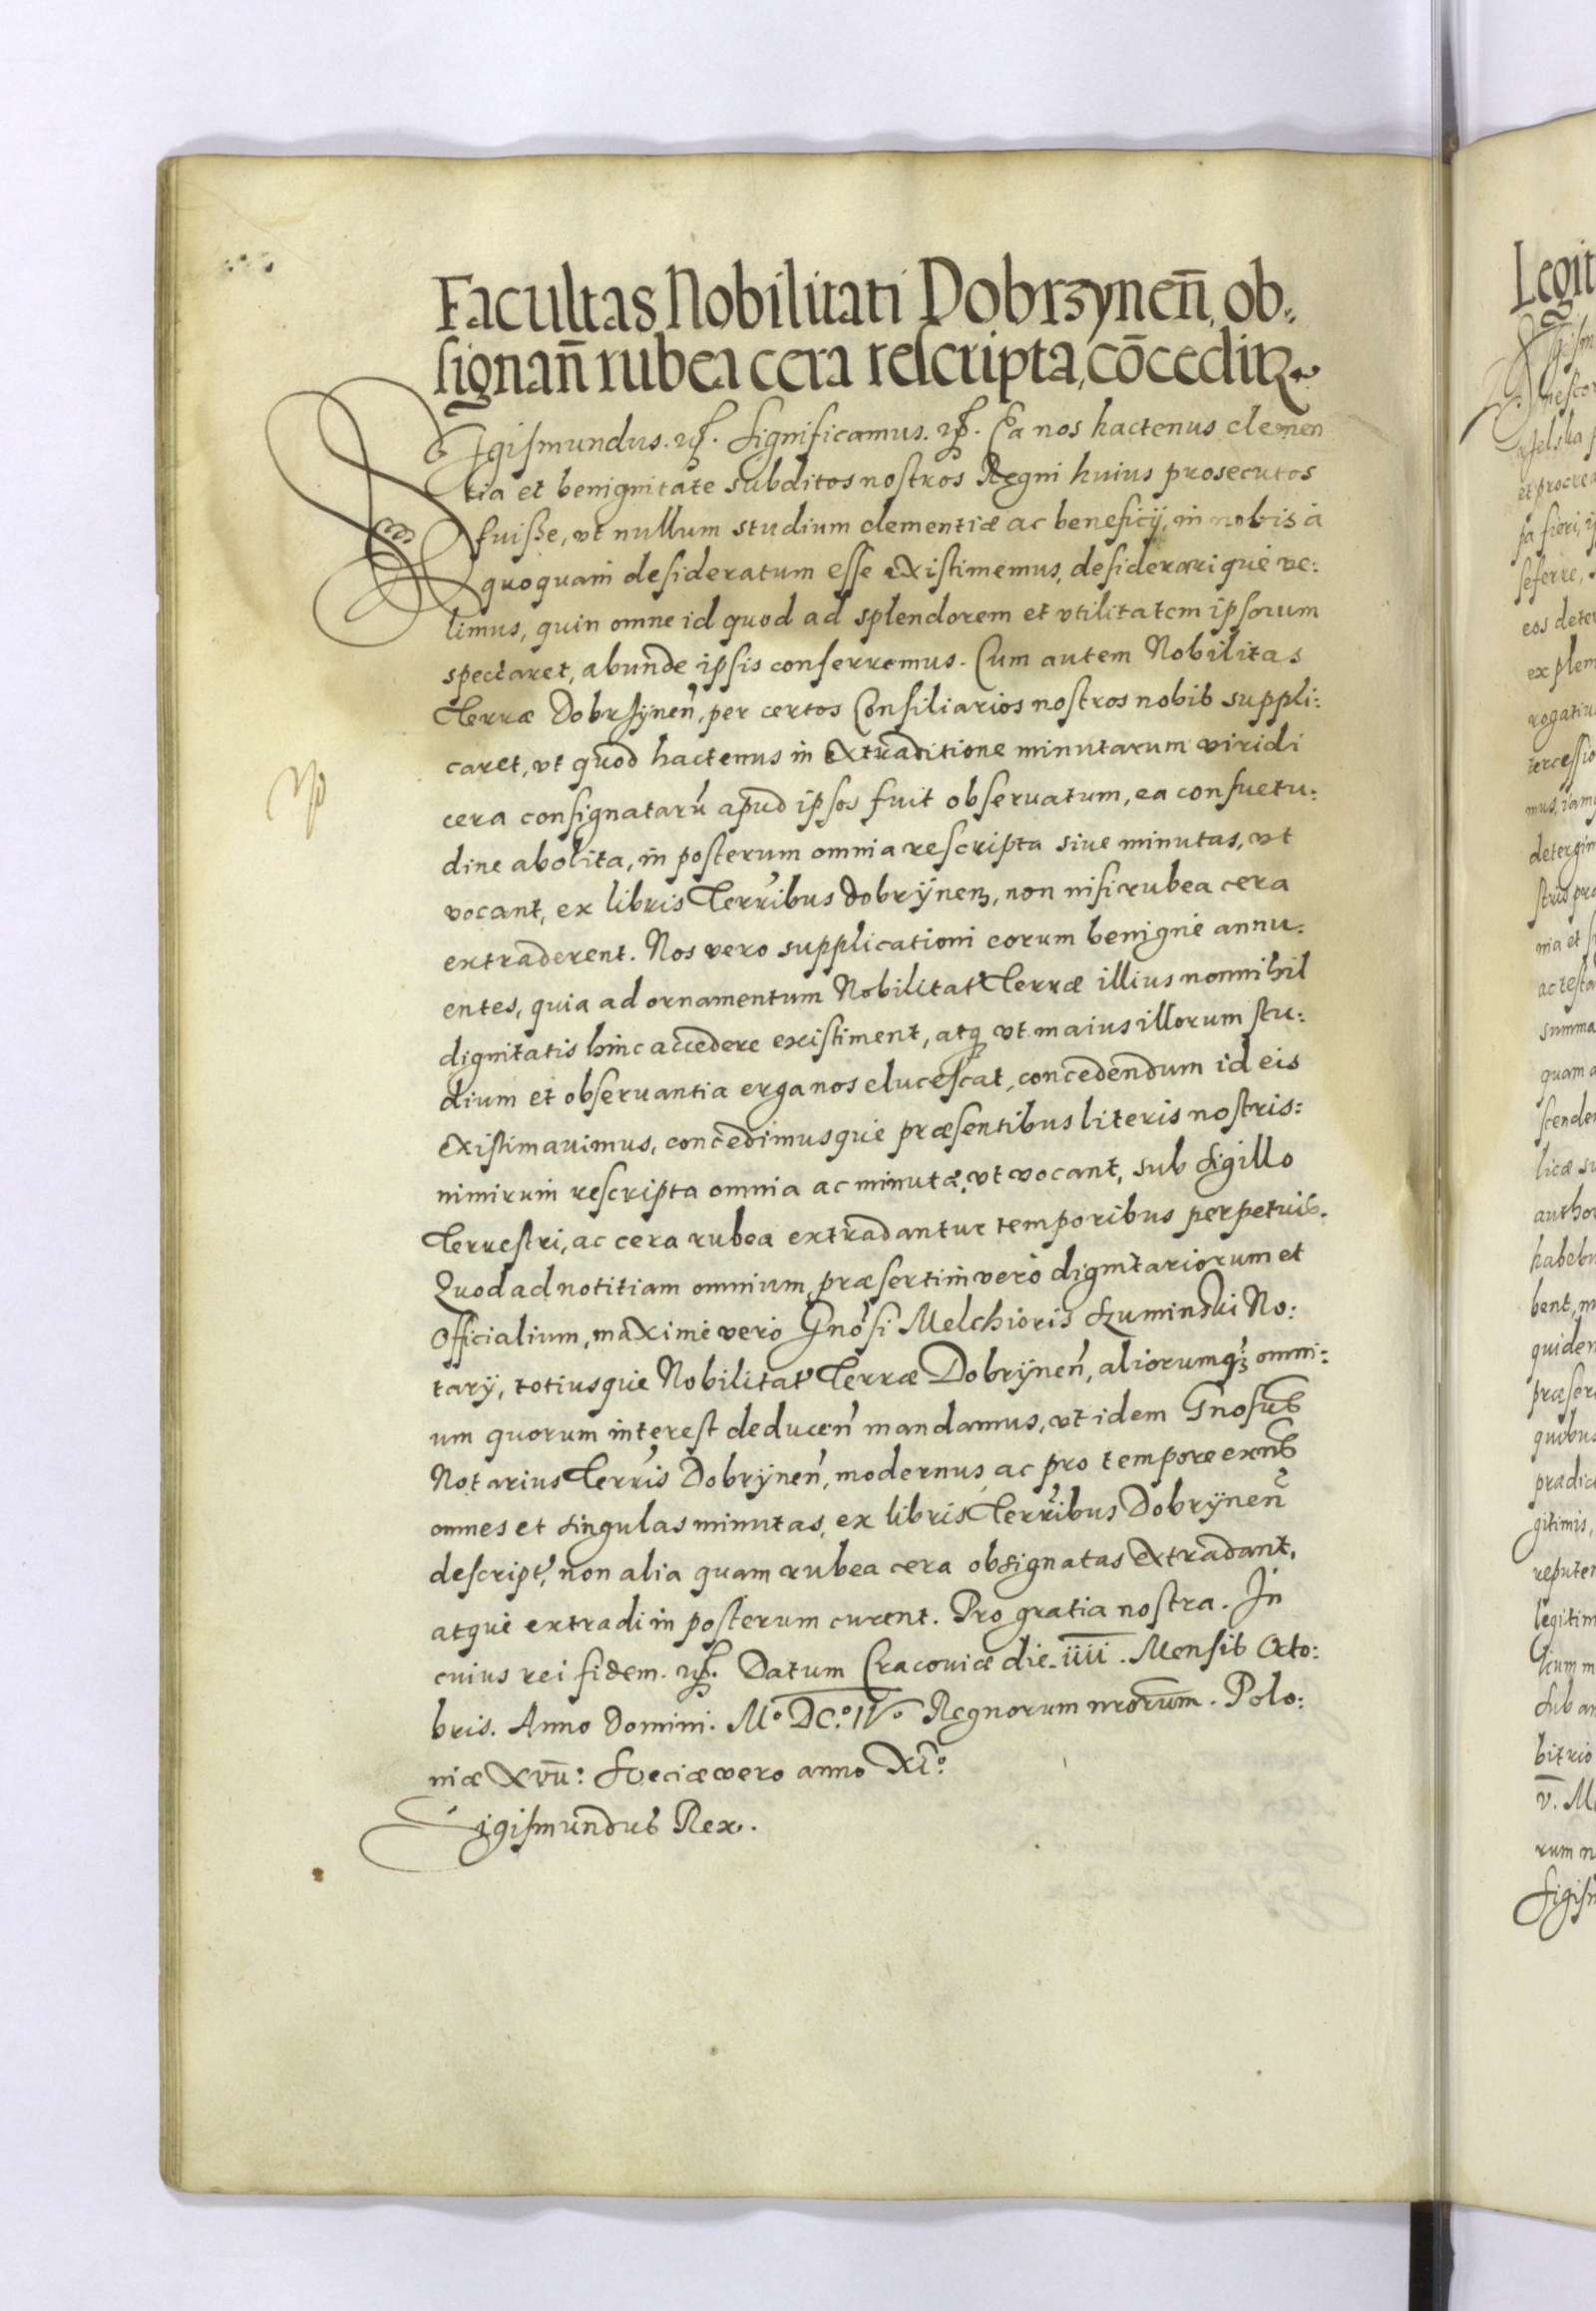 Facultas Nobilitati Dobrzynen̄, ob:
signan̄ rubea cera rescripta, cōcedit̃.
Sigismundus. Significamus. Ea nos hactenus clemen
tia et benignitate subditos nostros Regni huius prosecutos
fuisse, vt nullum studium clementiæ ac beneficij, in nobis à
quoquam desideratum esse existimemus, desiderarique ve:
limus, quin omne id quod ad splendorem et vtilitatem ipsorum
spectaret, abunde ipsis conferremus. Cum autem Nobilitas
Terræ Dobrzÿnen̄, per certos Consiliarios nostros nobis suppli:
caret, vt quod hactenus in extraditione minutarum viridi
cera consignatarū apud ipsos fuit obseruatum, ea consuetu:
dine abolita, in posterum omnia rescripta siue minutas, vt
vocant, ex libris Terrĩbus Dobrÿnen, non nisi rubea cera
extraderent. Nos vero supplicationi eorum benignè annu:
entes, quia ad ornamentum Nobilitat' Terræ illius nonnihil
dignitatis hinc accedere existiment, atq; vt maius illorum stu:
dium et obseruantia erga nos elucescat, concedendum id eis
existimauimus, concedimusque præsentibus literis nostris:
nimirum rescripta omnia ac minutæ, vt vocant, sub sigillo
Terrestri, ac cera rubea extradantur temporibus perpetuis.
Quod ad notitiam omnium, præsertim vero dignitariorum et
Officialium, maximè vero Gnōsi Melchioris Szuminski No:
tarij, totiusque Nobilitat' Terræ Dobrÿnen̄, aliorumq; omni:
um quorum interest deducen̄ mandamus, vt idem Gnosus
Notarius Terrĩs Dobrÿnen̄, modernus, ac pro tempore exñs
omnes et singulas minutas, ex libris Terrĩbus Dobrÿnen̄
descript', non alia quam rubea cera obsignatas extradant,
atque extradi in posterum curent. Pro gratia nostra. In
cuius rei fidem. Datum Cracouiæ die iiii. Mensis Octo:
bris. Anno Domini. M.° DC.° IV.° Regnorum nrorum. Polo:
niæ XVII: Sueciæ vero anno XI.°
Sigismundus Rex.